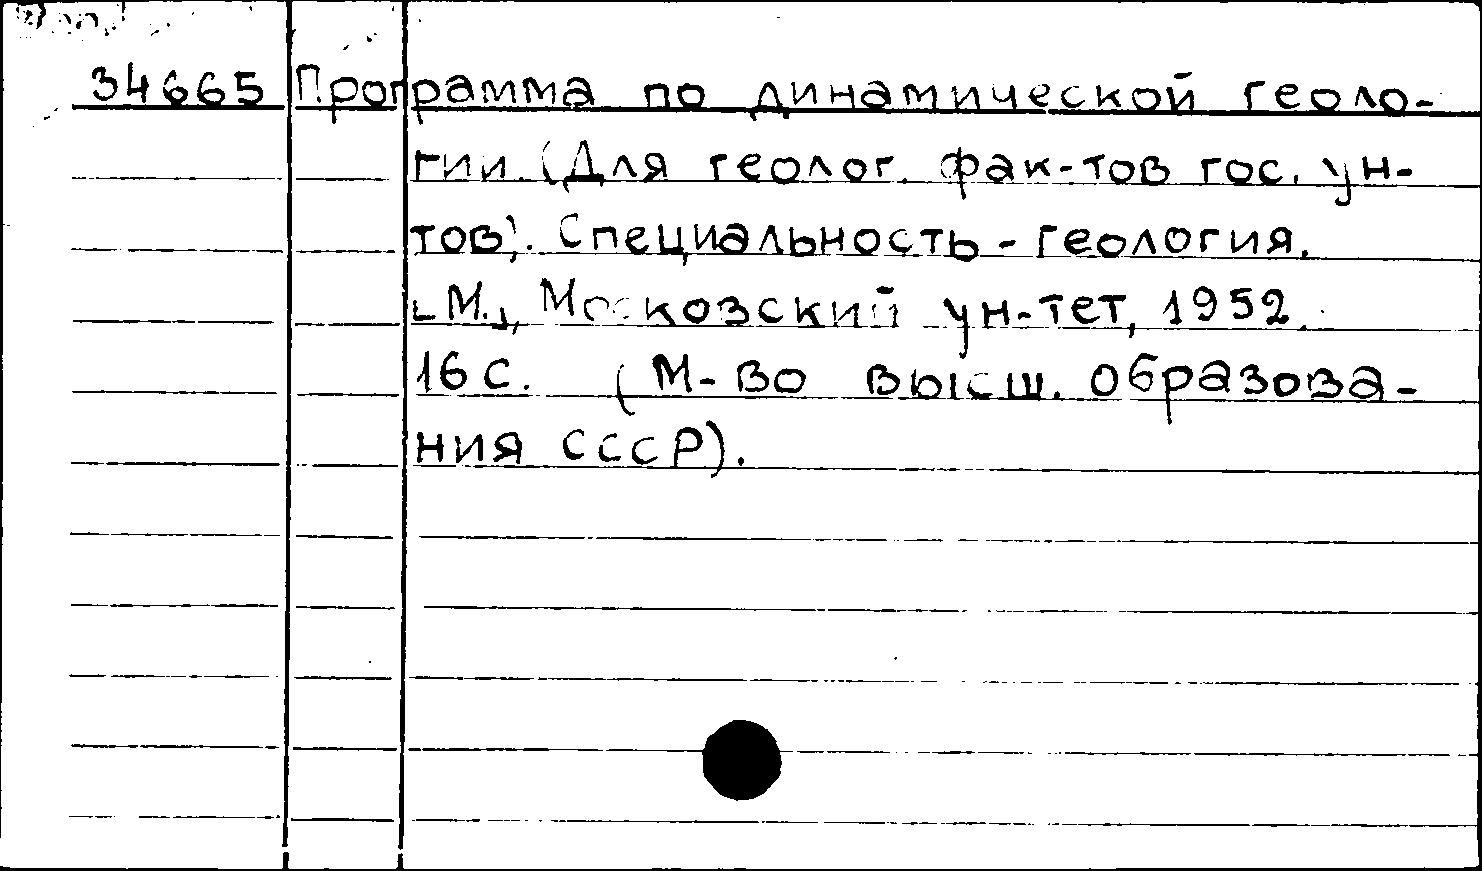 34665 Программа по динамической геоло-
гии. (Для геолог. фак-тов гос. ун-
тов). Специальность - геология.
[М.], Московский ун-тет, 1952.
16 с. (М-во высш. образова-
ния СССР).